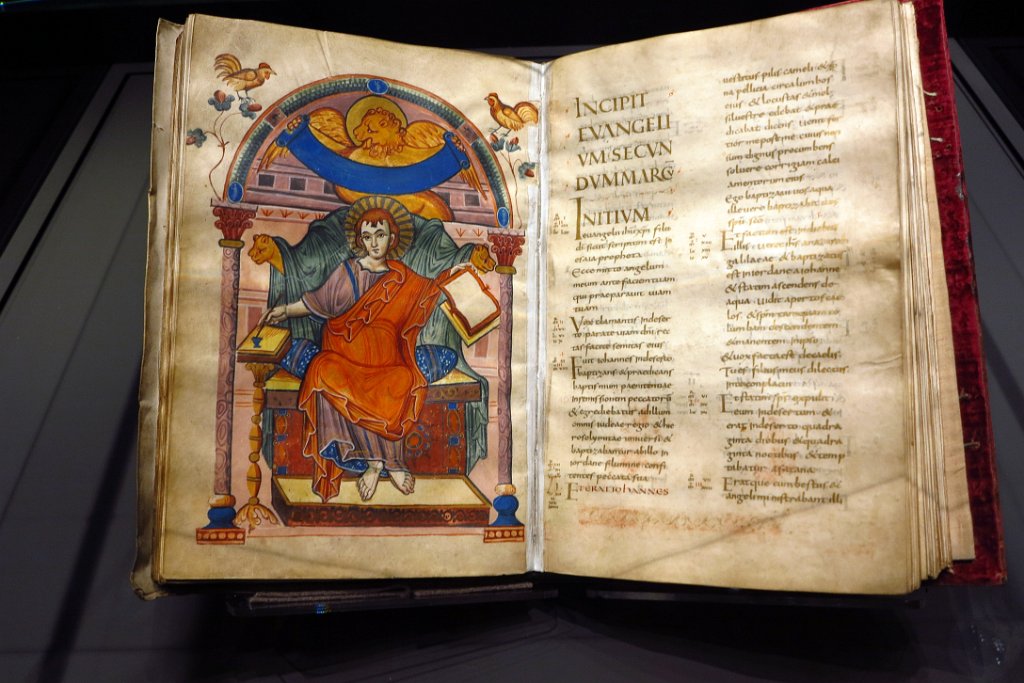 INCIPIT
EVANGELI
UM SECUN
DUM MARC
INITIUM
euangelii ihu xpi filii
di sicut scriptum est in
esaia propheta
Ecce mitto angelum
meum ante faciem tuam
qui praeparauit uiam
tuam
Vox clamantis in deser
to parate uiam dni rec
tas facite semitas eius
Fuit iohannes in deserto
baptizans & praedicans
baptismum paenitentiae
in remissionem peccatorū
& egrediebatur ad illum
omnis iudeae regio & hie
rosolymitae uniuersi &
baptizabantur ab illo in
iordane flumine confi
tentes peccata sua
Et erat iohannes
uestitus pilis cameli & zo
na pellicia circa lumbos
eius & locustas & mel
siluestre edebat & prae
dicabat dicens uenit for
tior me post me cuius non
sum dignus procumbens
soluere corrigiam calcia
mentorum eius
Ego baptizaui uos aqua
ille uero baptizabit uos
spu sco
Et factum est in diebus
illis uenit ihs a nazareth
galilaeae & baptizatus
est in iordane a iohanne
& statim ascendens de
aqua uidit apertos cae
los & spm tamquam co
lumbam descendentem
& manentem in ipso
& uox facta est de caelis
Tu es filius meus dilectus
in te complacui
Et statim sps expulit
eum in desertum & in
erat in deserto quadra
ginta diebus & quadra
ginta noctibus & temp
tabatur a satana
Eratque cum bestiis &
angeli ministrabant illi